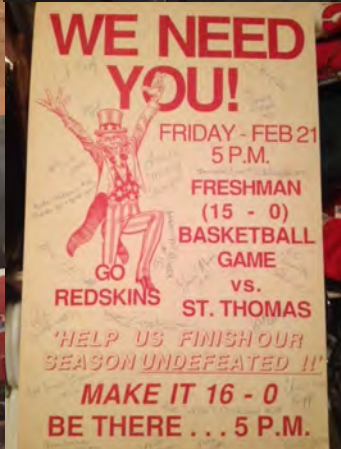 WE NEED
YOU!
FRIDAY - FEB 21
5 P.M.
FRESHMAN
(15 - 0)
BASKETBALL
GAME
vs.
ST. THOMAS
GO
REDSKINS
'HELP US FINISH OUR
SEASON UNDEFEATED !!'
MAKE IT 16 - 0
BE THERE . . . 5 P.M.